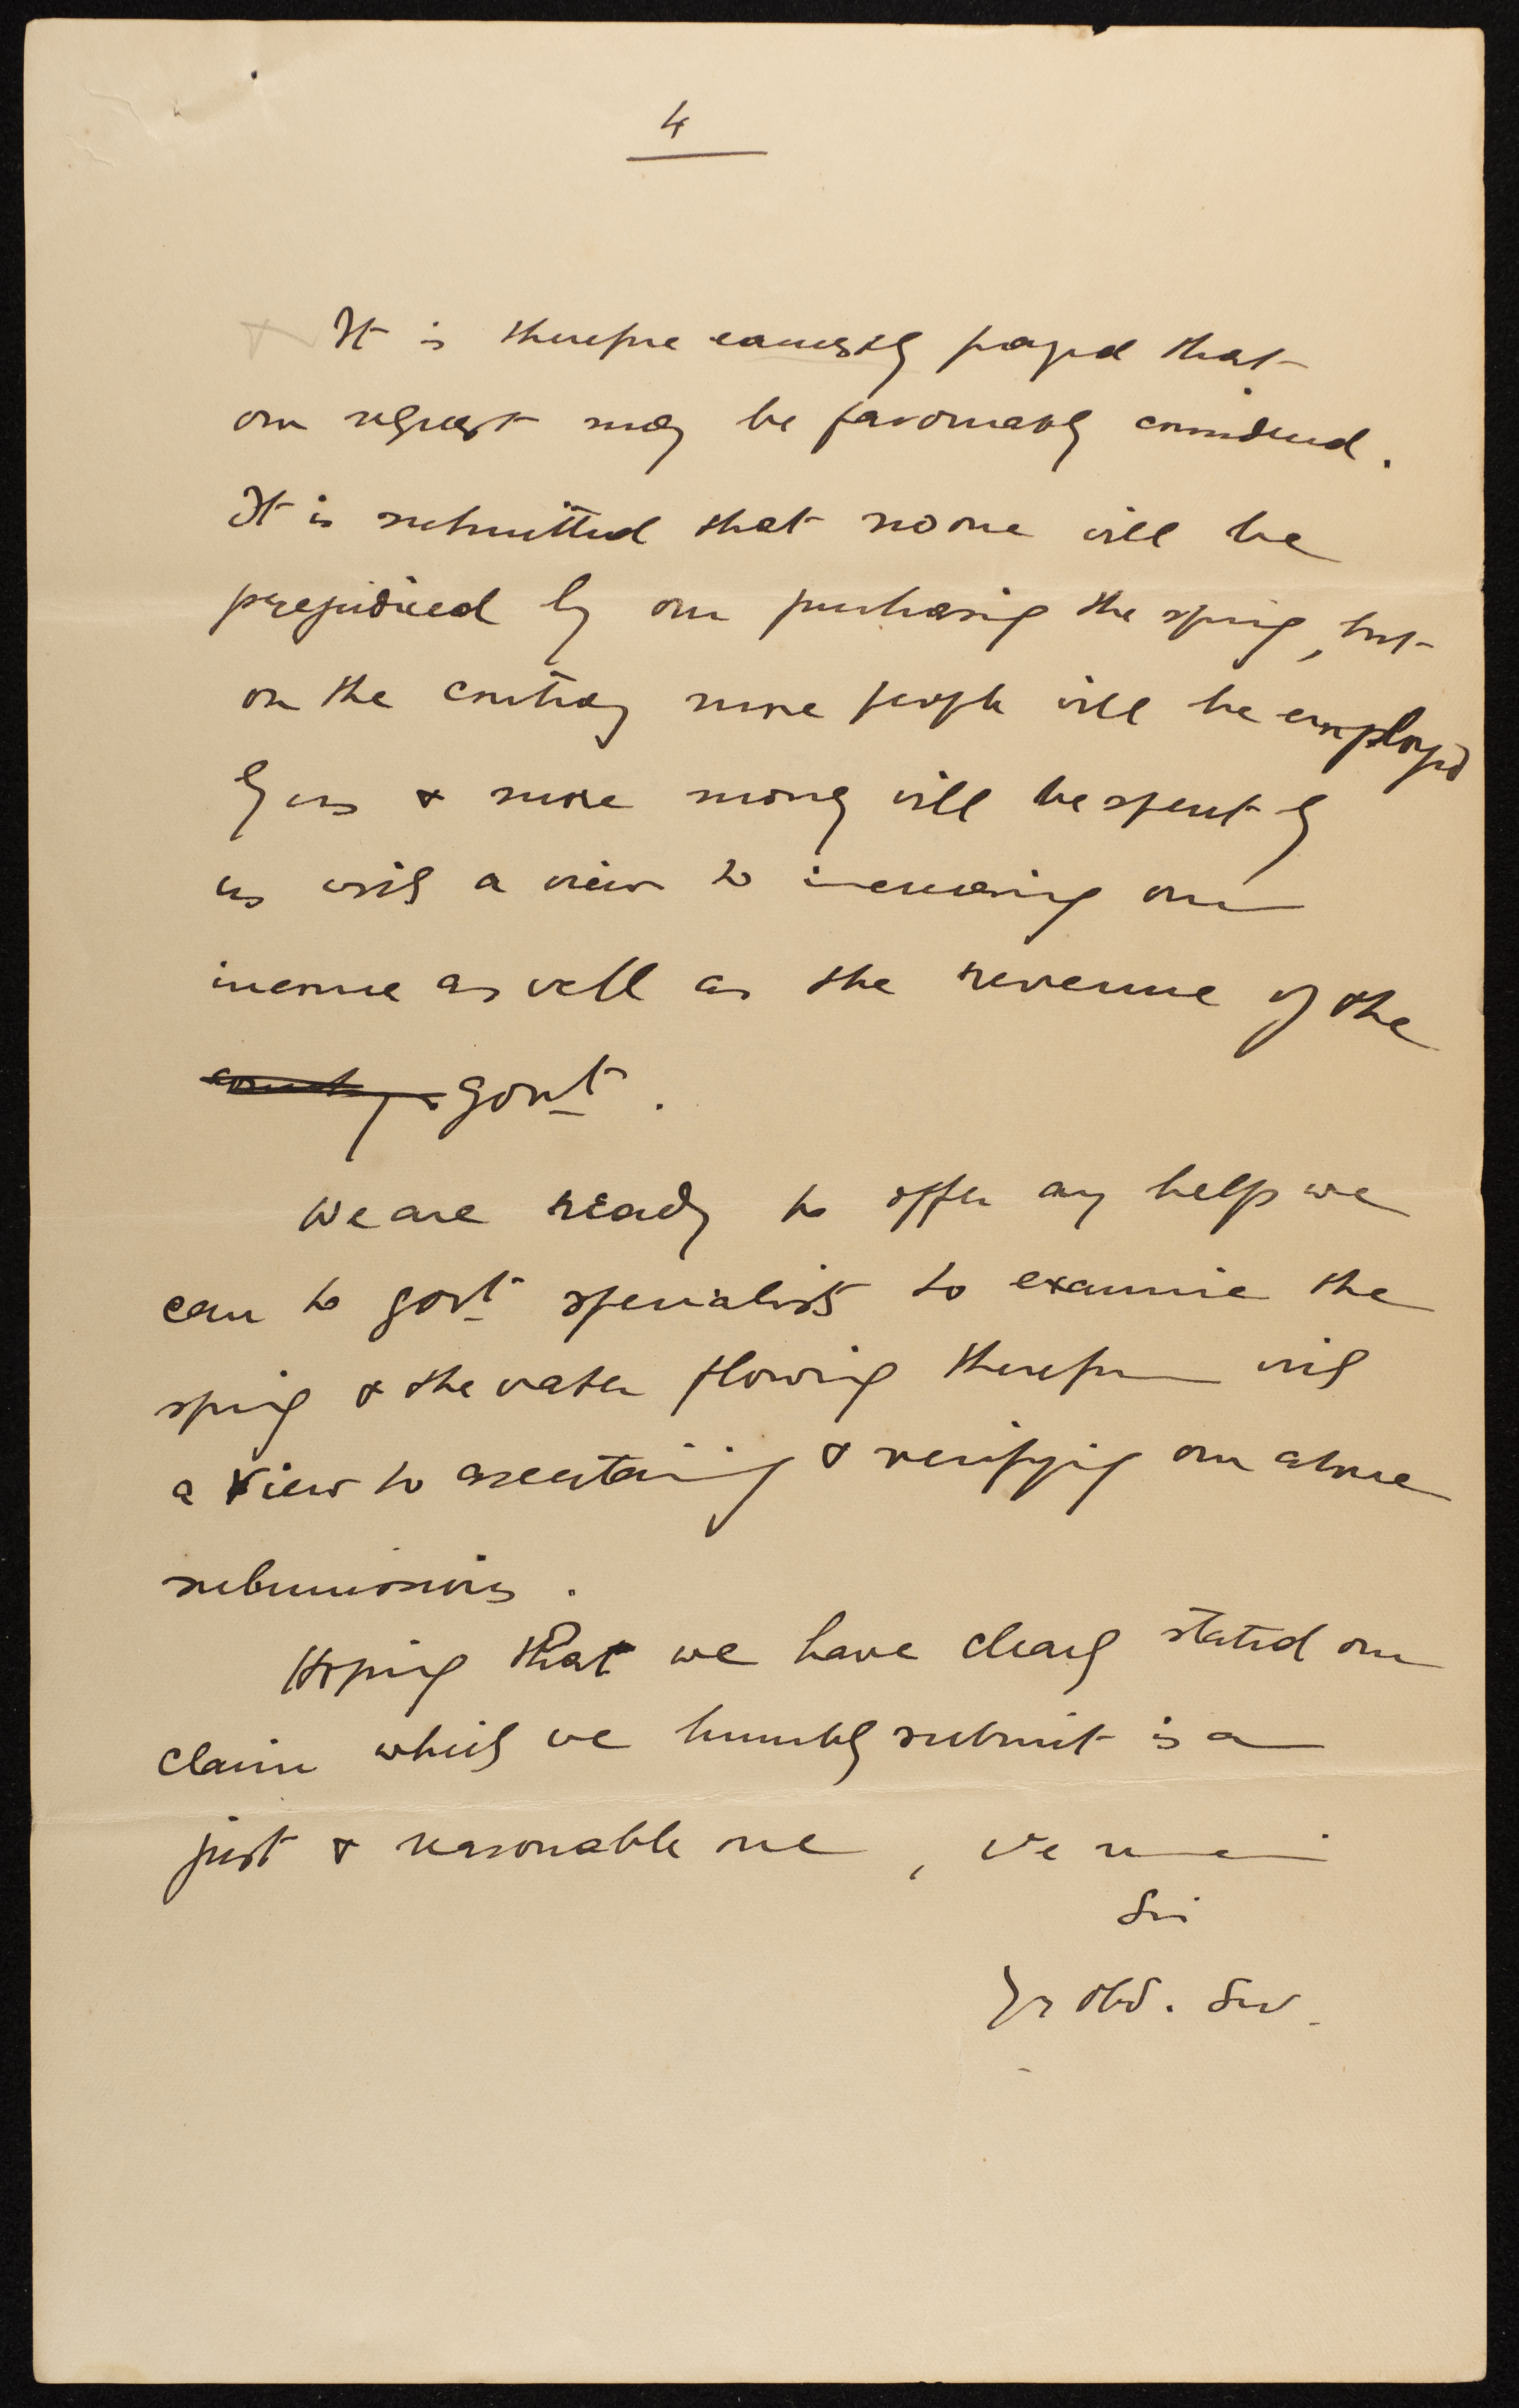 4
It is therefore earnestly prayed that
our request may be favourably considered.
It is submitted that no one will be
prejudiced by our purchasing the spring, but
on the contrary more people will be employed
by us & more money will be spent by
us with a view to increasing our
income as well as the revenue of the
country Govt.
We are ready to offer any help we
can to govt specialists to examine the
spring & the water flowing therefrom with
a view to ascertaining & verifying our above
submissions.
Hoping that we have clearly stated our
claim which we humbly submit is a
just & reasonable one, we remain
Sir
Yr obd. Serv.